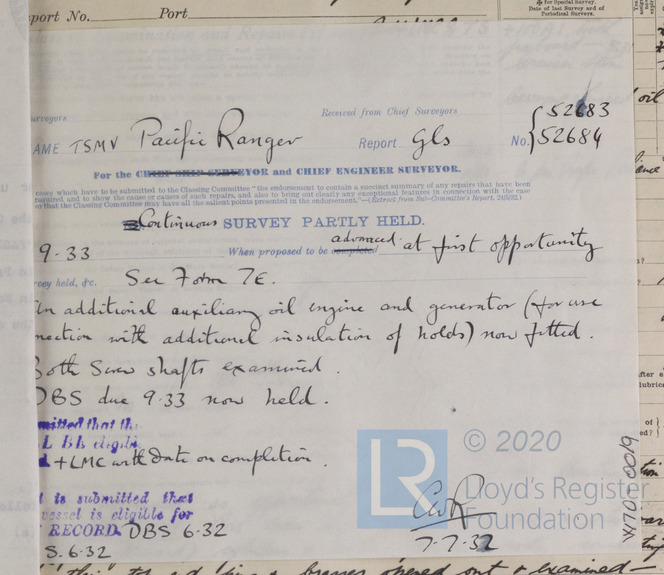 port No. Port
for Special Survey.
Date of last Survey and of
Periodical Surveys.
urveyors Received from Chief Surveyors
AME TSMV Pacific Ranger Report Gls No. { 52683
52684
For the CHIEF SHIP SURVEYOR and CHIEF ENGINEER SURVEYOR.
cases which have to be submitted to the Classing Committee "the endorsement to contain a succinct summary of any repairs that have been
required and to show the cause or causes of such repairs, and also to bring out clearly any exceptional features in connection with the case
so that the Classing Committee may have all the salient points presented in the endorsement."—(Extract from Sub-Committee's Report,
Continuous SURVEY PARTLY HELD.
9.33 When proposed to be completed advanced at first opportunity
vey held, &c. See Form 7E.
An additional auxiliary oil engine and generator (for use
nection with additional insulation of holds) now fitted.
Both Screw shafts examined.
DBS due 9.33 now held.
mitted that the
L BE eligible
+LMC with date on completion.
t is submitted that
vessel is eligible for
RECORD. DBS 6.32
S. 6.32
7.7.32
© 2020
LR
Lloyd's Register
Foundation
W701-0019
oil
after e
lubric
of
ed?
opened out & examined —